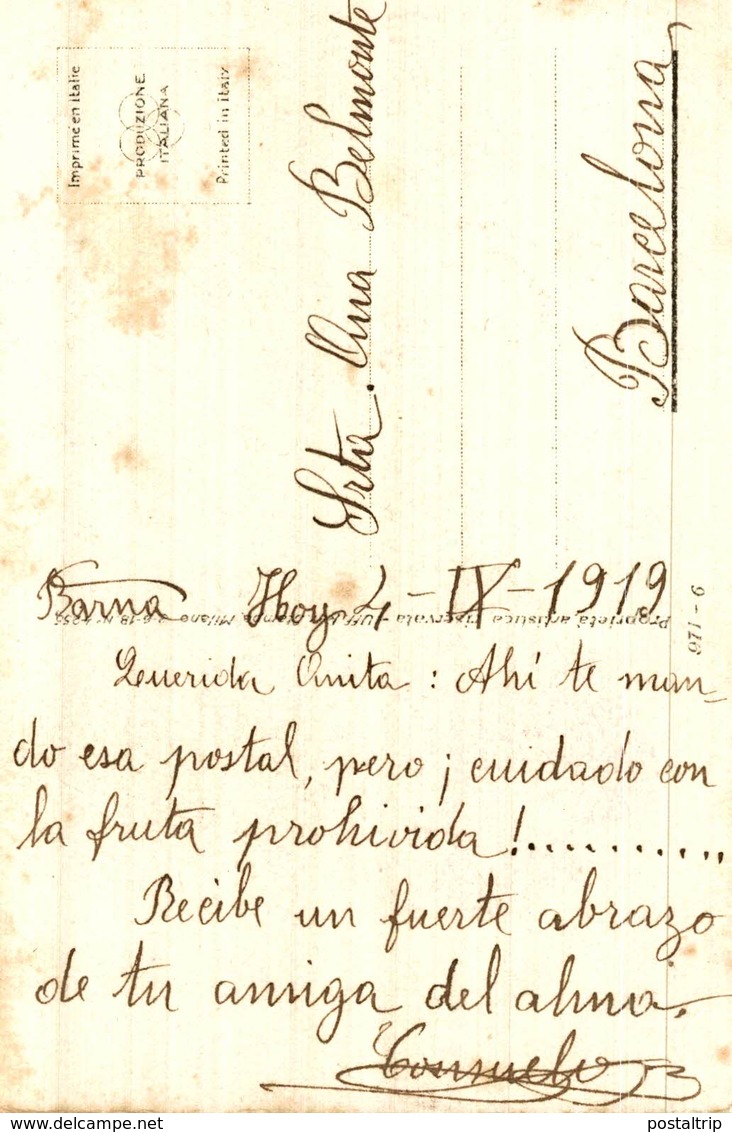 Imprimé en Italie
PRODUZIONE
ITALIANA
Printed in Italy
Srta. Ana Belmonte
Barcelona
Barna Hoy 4-IX-1919
Proprietà artistica riservata - Milano
971-6
Querida Anita: Ahí te man-
do esa postal, pero ¡cuidado con
la fruta prohivida!...........
Recibe un fuerte abrazo
de tu amiga del alma.
Consuelo
delcampe.net
postaltrip